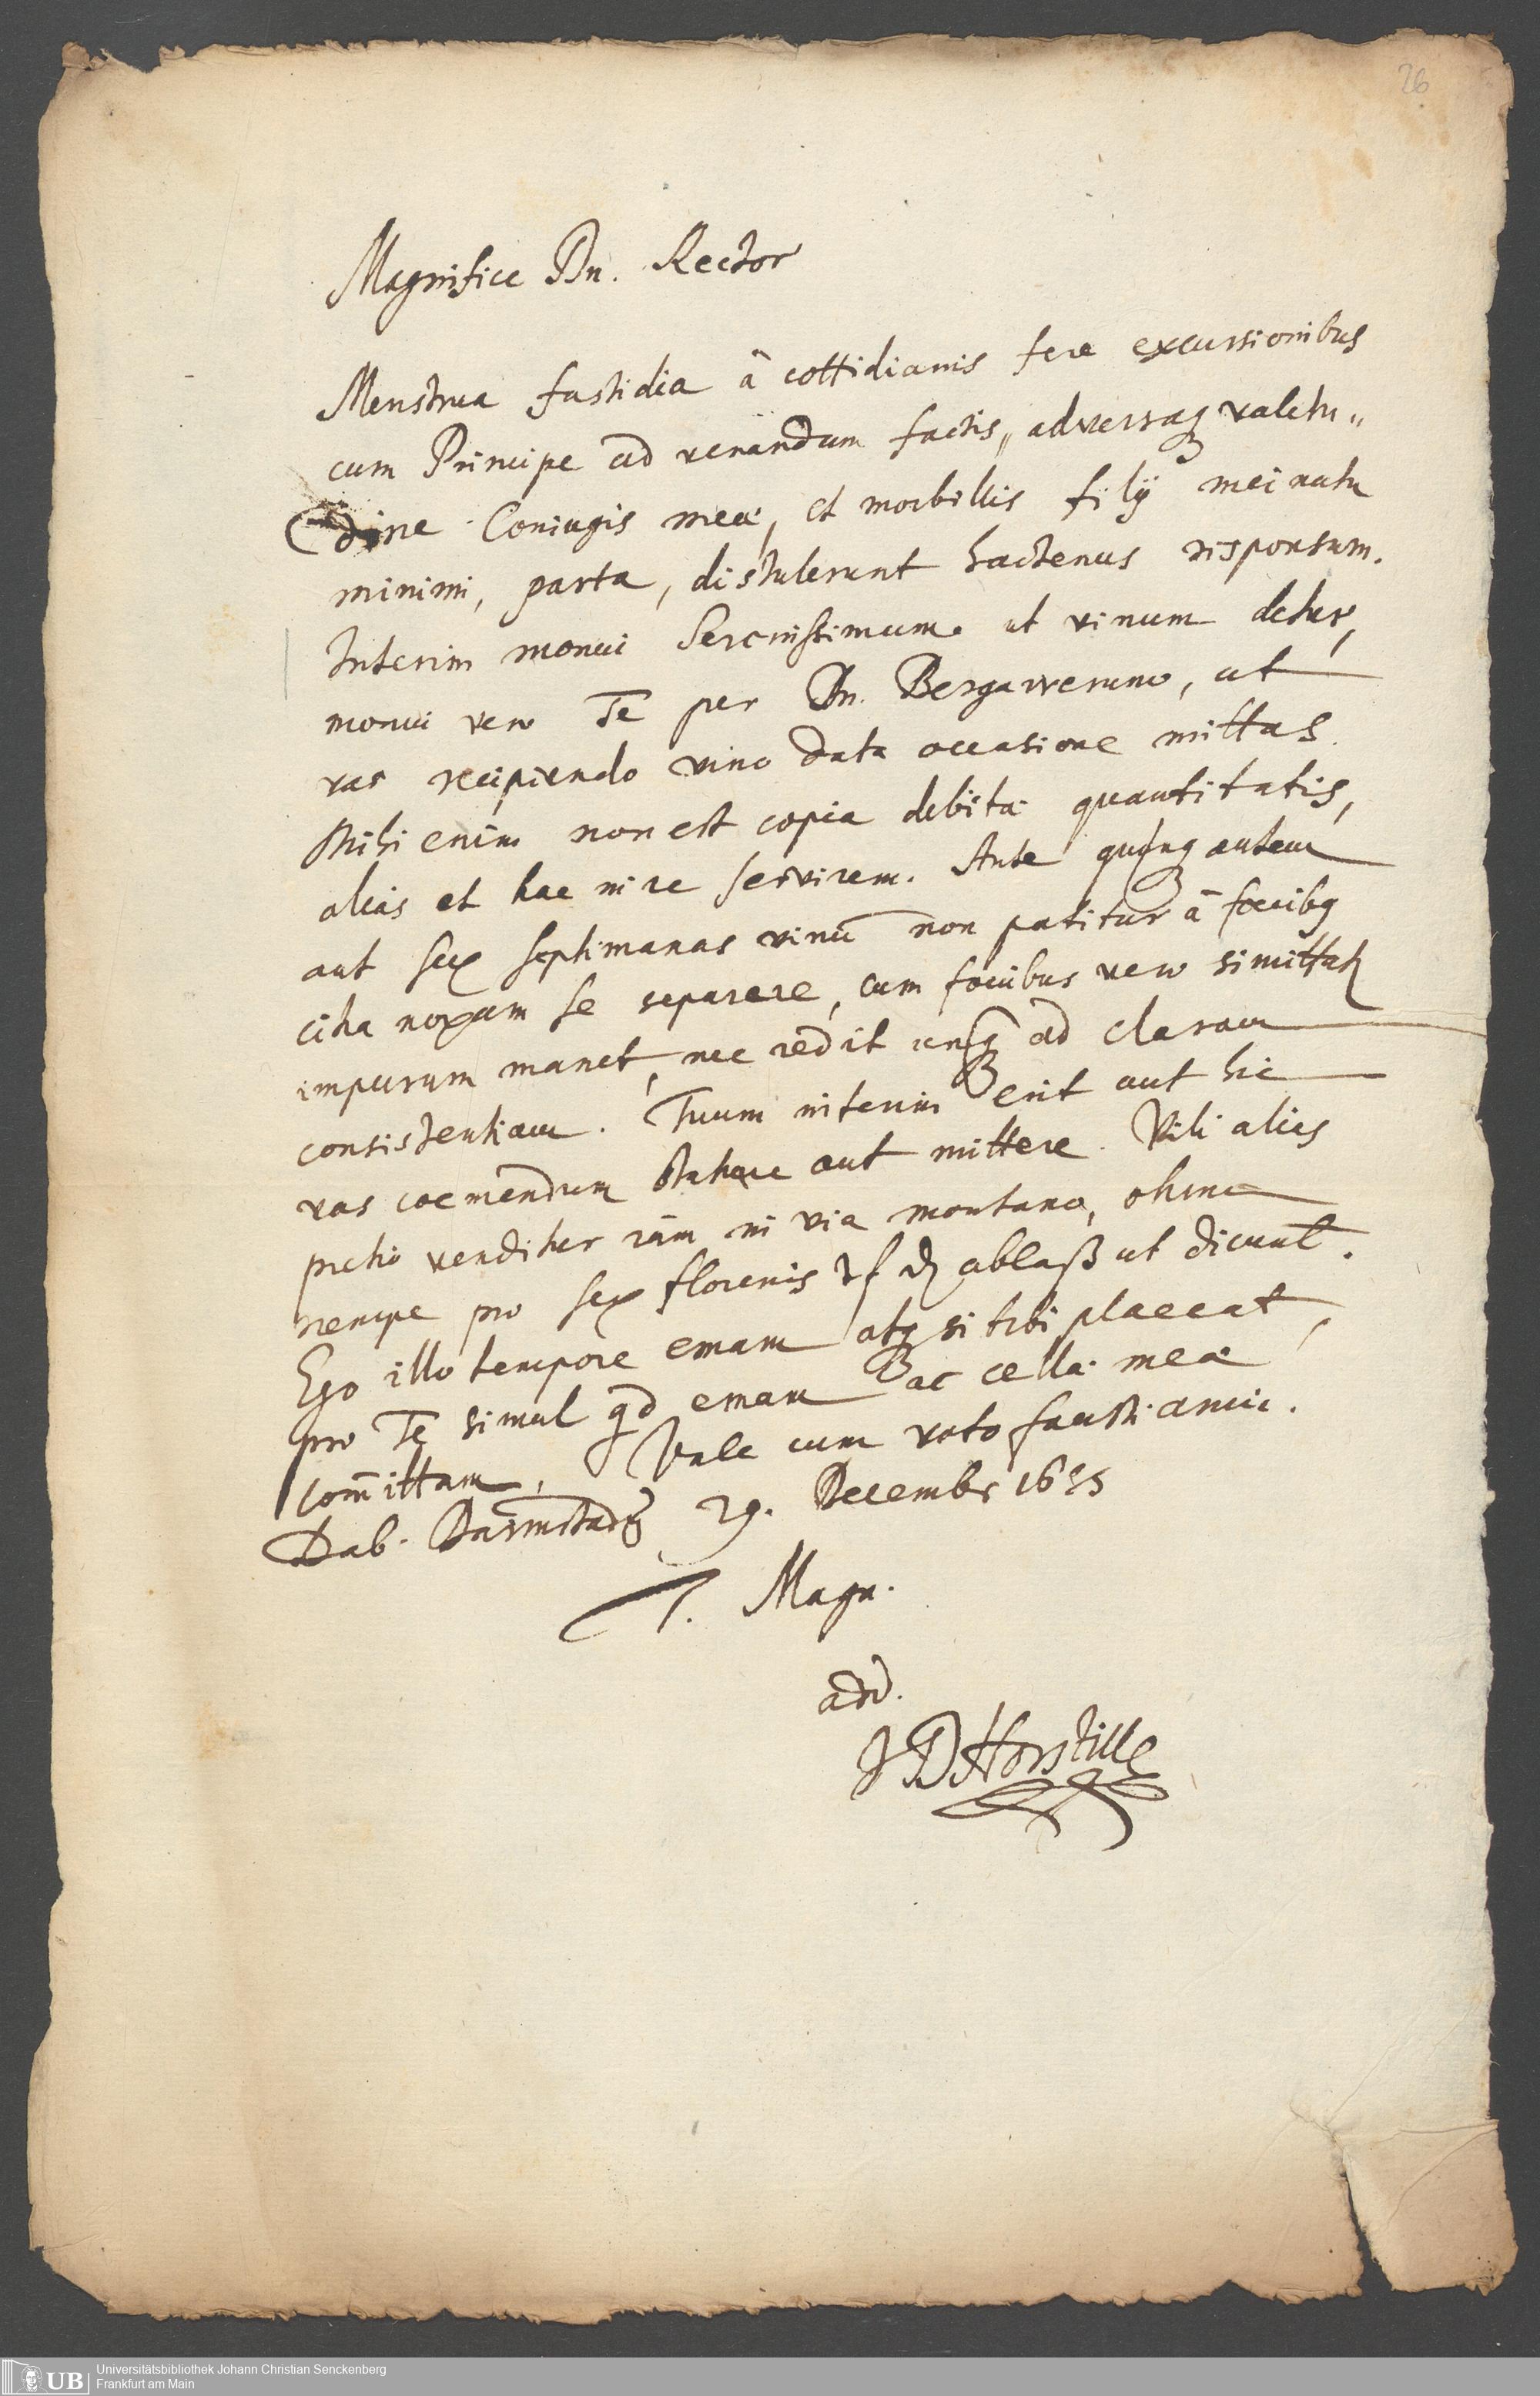 26
Magnifice Dn. Rector
Menstrua fastidia â cottidianis fere excursionibus
cum Principe ad venandum factis, adversaq valetu„
dine Coniugis meae, et morbillis filij mei natu
minimi, parta, distulerunt hactenus responsum.
Interim monui Serenissimum ut vinum detur,
monui vero Te per Dn. , ut
vas recipiendo vino data occasione mittas.
Mihi enim non est copia debitae quantitatis,
alias et hac in re servirem. Ante quinq autem
aut sex septimanas vinū non patitur â foecibq
citra noxam se separare, cum foecibus vero si mittatur
impurum manet, nec redit unq ad claram
consistentiam. Tuum interim erit aut hic
vas coemendum statuere aut mittere. Vili alias
pretio venditur iam in via montana, ohma
nempe pro sex florenis ablaß ut dicunt.
Ego illo tempore emam atq si tibi placeat,
pro Te simul qd emam ac cellae meae
com̄ittam. Vale cum voto fausti anni.
Dab. Darmstadj 29. Decembr 1655
T. Magn.
add.
J D Horstius
Universitätsbibliothek Johann Christian Senckenberg
Frankfurt am Main
UB